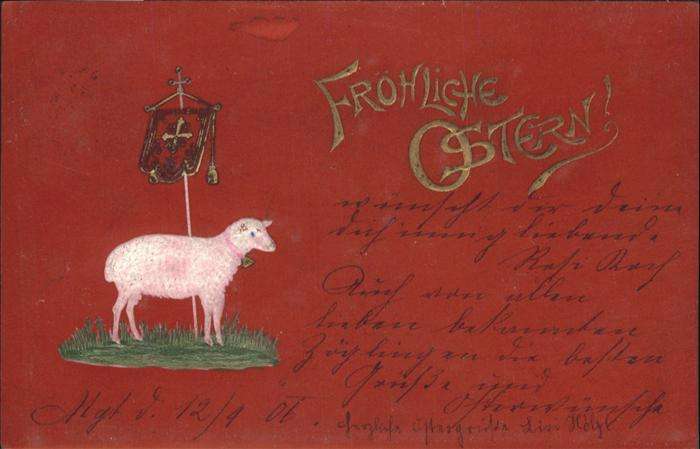 FRÖHLICHE
OSTERN!
wünscht dir deine
dich innig liebende
Resi Koch
Auch von allen
lieben bekannten
Zöglingen die besten
Grüße und
Osterwünsche
Mgl d. 12/4 01.
herzliche Ostergrüße